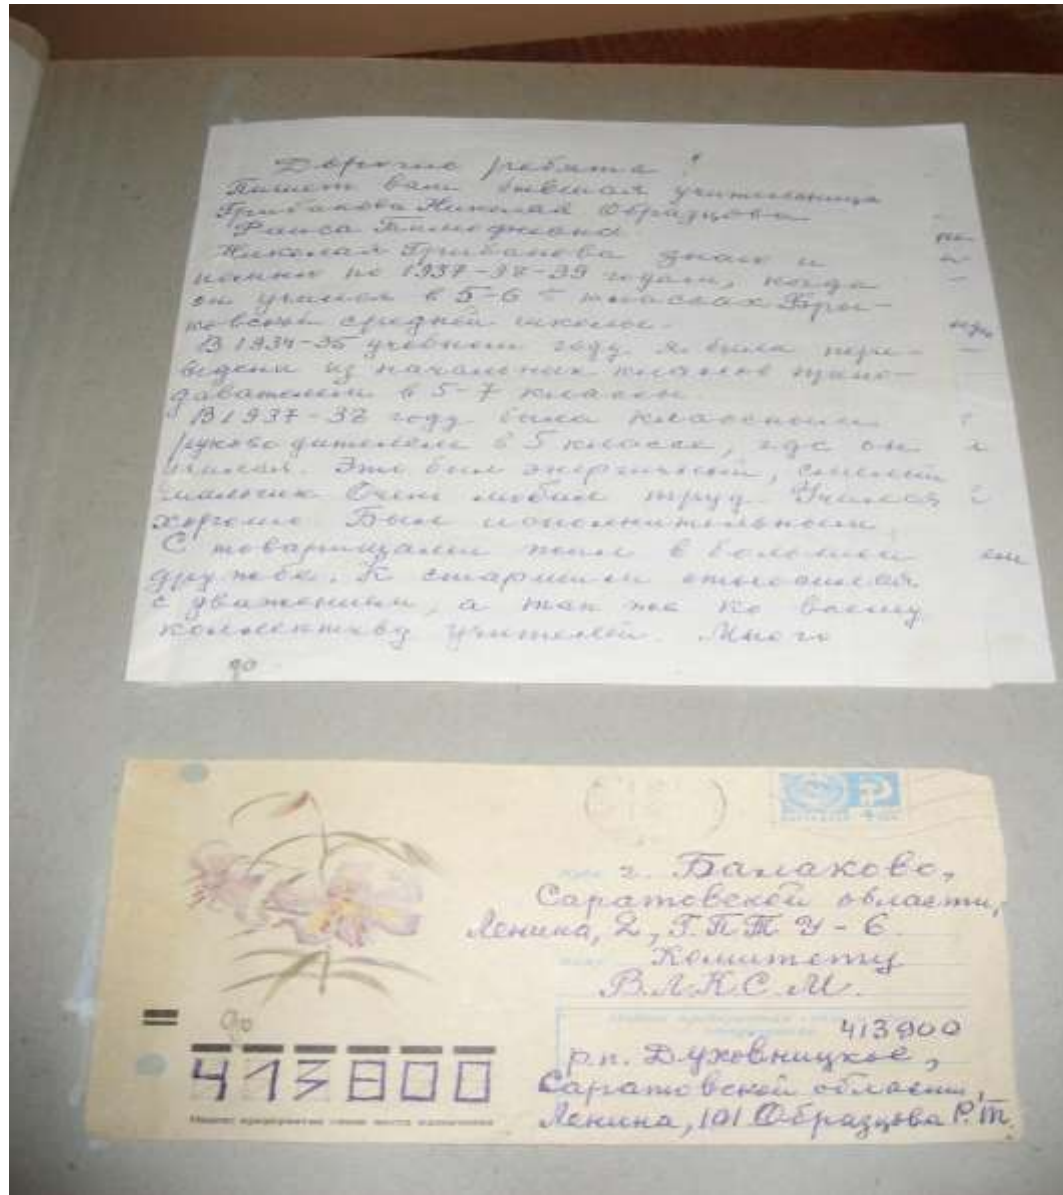 Дорогие ребята!
Пишет вам бывшая учительница
Грибанова Николая Образцова
Раиса Тимофеевна
Николая Грибанова знаю и
помню по 1937-38-39 годам, когда
он учился в 5-6 классах
средней школы.
В 1934-35 учебном году я была пере-
ведена из начальных классов препо-
давателем в 5-7 классы.
В 1937-38 году была классным
руководителем в 5 классе, где он
учился. Это был энергичный, смелый
мальчик Очень любил труд. Учился
хорошо. Был исполнительным.
С товарищами жил в большой
дружбе. К старшим относился
с уважением, а так же ко всему
коллективу учителей. Много
г. Балаково,
Саратовской области,
Ленина, 2, Г.П.Т.У-6.
Комитету
В.Л.К.С.М.
413900
р.п. Духовницкое,
Саратовской области,
Ленина, 101 Образцова Р.Т.
413800
Индекс предприятия связи места назначения